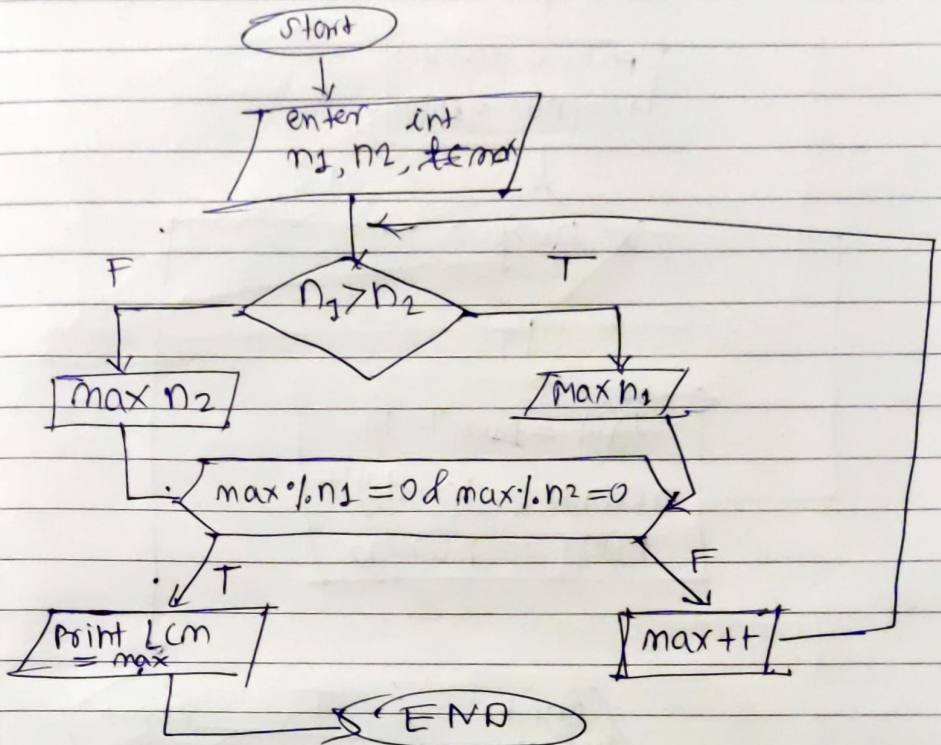 Start
enter int
n1, n2, max
F
T
n1>n2
max n2
max n1
max%n1=0 & max%n2=0
T
F
Print LCM
= max
max++
END